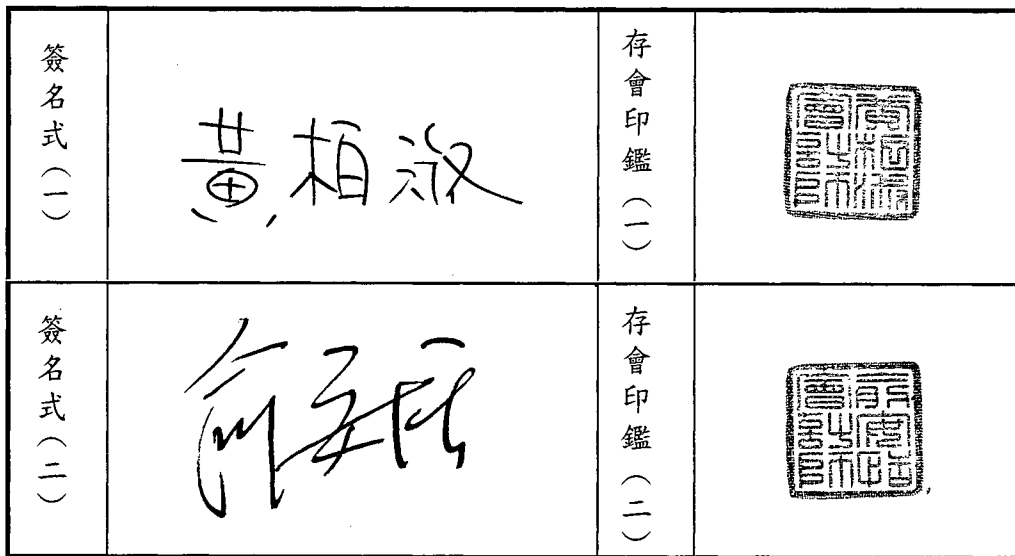 簽名式(一)
黃柏淑
存會印鑑(一)
簽名式(二)
俞安恬
存會印鑑(二)